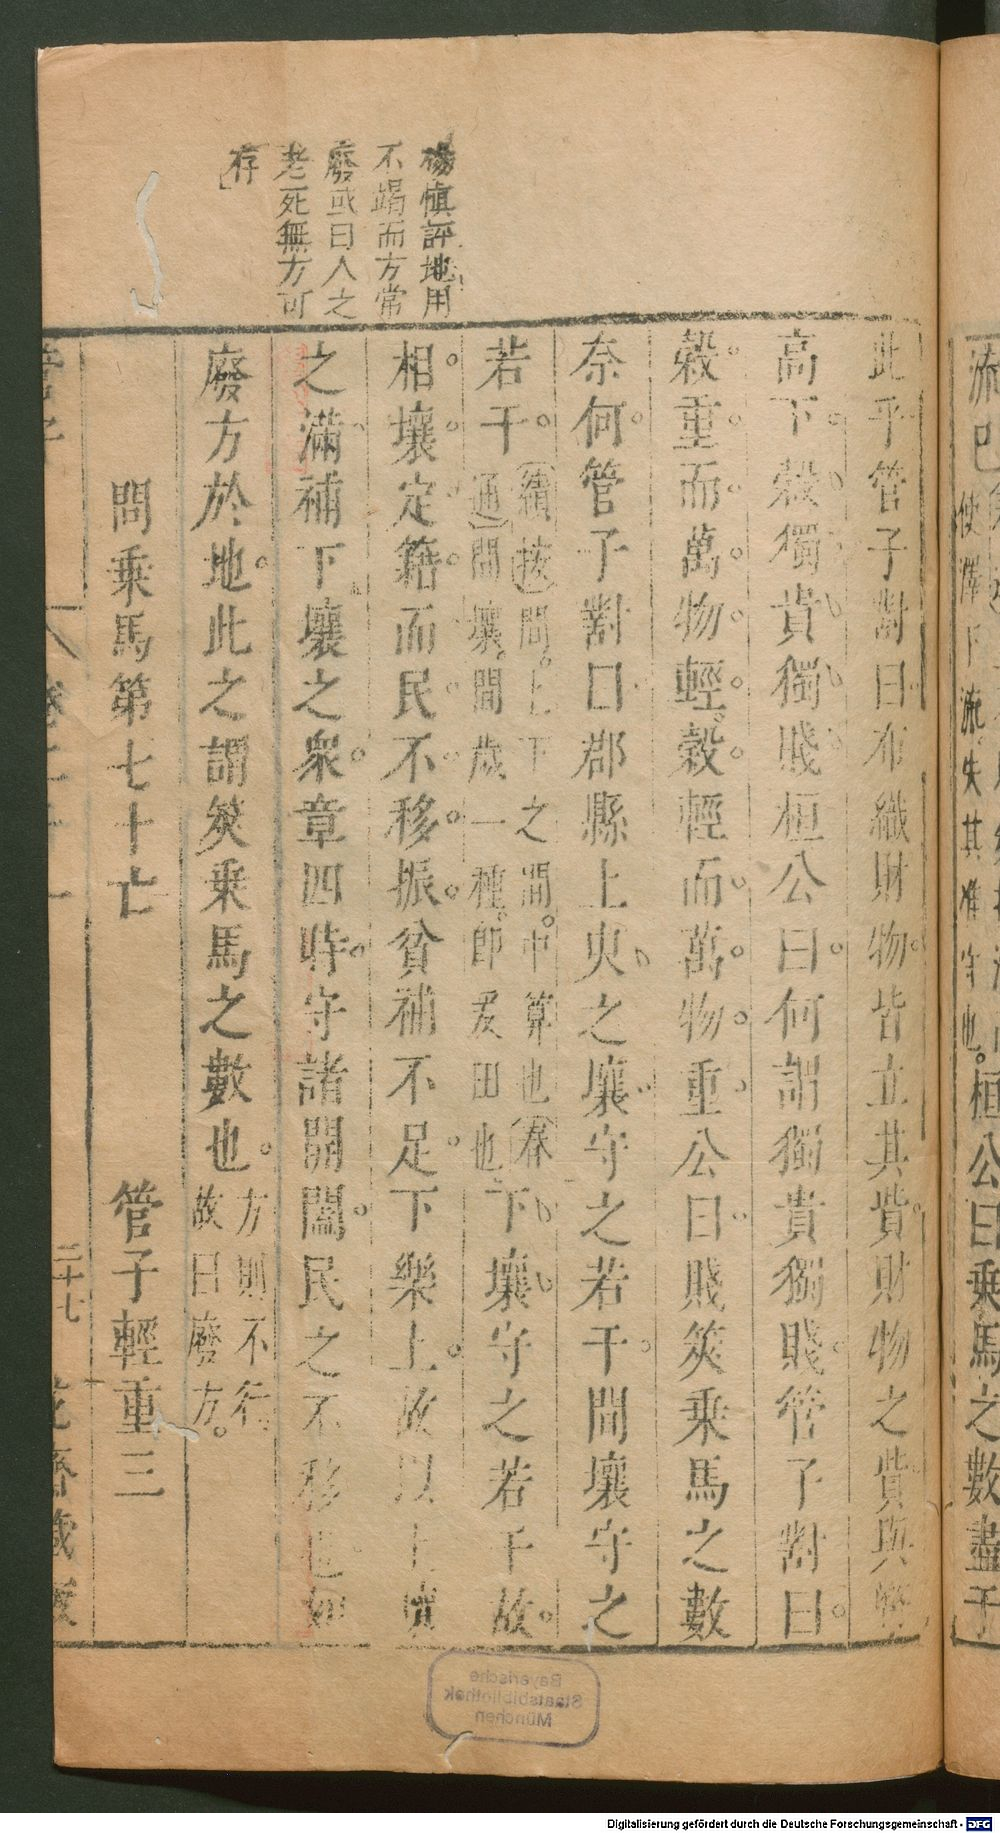 流已
使澤下流失其准守也。桓公曰乘馬之數盡于
此乎管子對曰布織財物皆立其貲財物之貲與幣
高下穀獨貴獨賤桓公曰何謂獨貴獨賤管子對曰
穀重而萬物輕穀輕而萬物重公曰賤筴乘馬之數
奈何管子對曰郡縣上臾之壤守之若干間壤守之
若干(續按)間上下之間中算也(春
通)間壤間歲一種即爰田也下壤守之若干故
相壤定籍而民不移振貧補不足下樂上故以上壤
之滿補下壤之衆章四時守諸開闔民之不移也如
廢方於地此之謂筴乘馬之數也方則不行
故曰廢方
問乘馬第七十亡 管子輕重三
楊慎評地用
不竭而方常
廢或曰人之
老死無方可
存
管子
二十七
花齋藏板
Bayerische
Staatsbibliothek
München
Digitalisierung gefördert durch die Deutsche Forschungsgemeinschaft - DFG